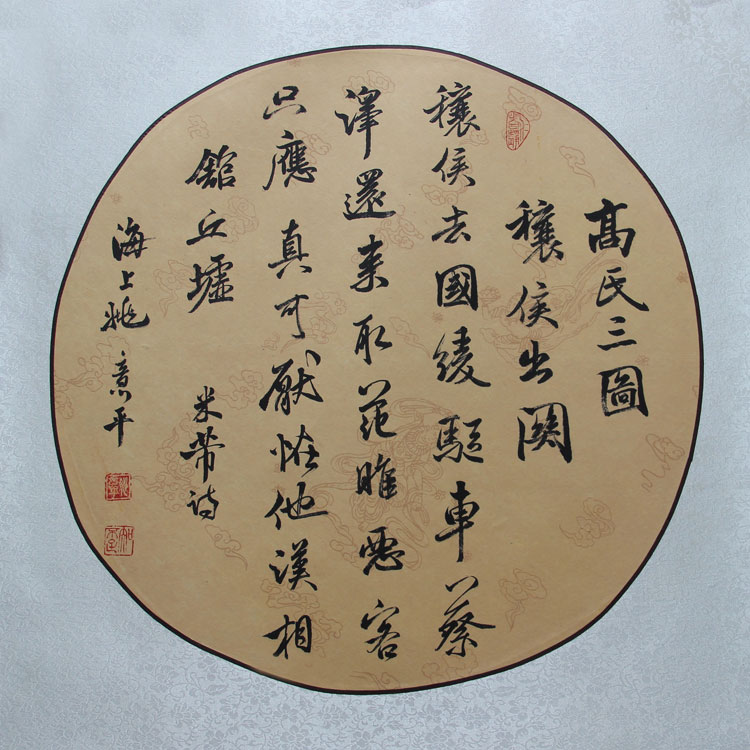 高氏三圖
穰侯出関
穰侯去國緩駈車蔡
澤還来取范睢惡客
只應真可厭怪他漢相
舘丘墟 米芾詩
海上姚意平